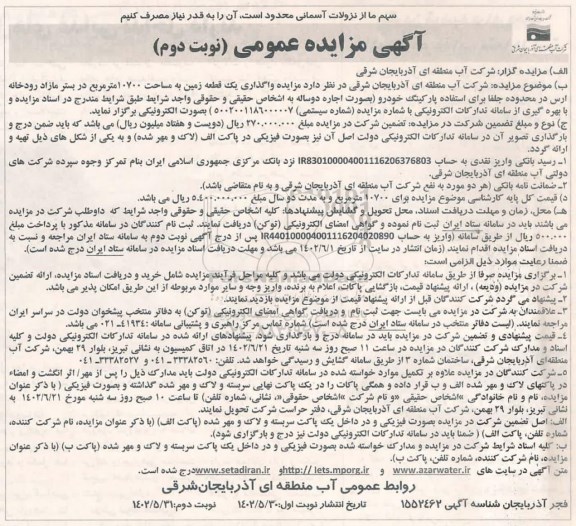 سهم ما از نزولات آسمانی محدود است، آن را به قدر نیاز مصرف کنیم
آگهی مزایده عمومی (نوبت دوم)
الف) مزایده گزار: شرکت آب منطقه ای آذربایجان شرقی
ب) موضوع مزایده: شرکت آب منطقه ای آذربایجان شرقی در نظر دارد مزایده واگذاری یک قطعه زمین به مساحت ۱۰۷۰۰مترمربع در بستر مازاد رودخانه
ارس در محدوده جلفا برای استفاده پارکینگ خودرو (بصورت اجاره دوساله به اشخاص حقیقی و حقوقی واجد شرایط طبق شرایط مندرج در اسناد مزایده و
با بهره گیری از سامانه تدارکات الکترونیکی با شماره مزایده (شماره سیستمی) ۵۰۰۲۰۰۱۱۸۶۰۰۰۰۰۷) بصورت الکترونیکی برگزار نماید.
ج) نوع و مبلغ تضمین شرکت در مزایده: تضمین شرکت در مزایده مبلغ ۲۷۰.۰۰۰.۰۰۰ ریال (دویست و هفتاد میلیون ریال) می باشد که باید ضمن درج و
بارگذاری تصویر آن در سامانه تدارکات الکترونیکی دولت اصل آن نیز بصورت فیزیکی در پاکت الف (لاک و مهر شده) و به یکی از شکل های ذیل تهیه و
ارائه گردد.
۱ـ رسید بانکی واریز نقدی به حساب IR830100004001116206376803 نزد بانک مرکزی جمهوری اسلامی ایران بنام تمرکز وجوه سپرده شرکت های
دولتی آب منطقه ای آذربایجان شرقی.
۲ـ ضمانت نامه بانکی (هر دو مورد به نفع شرکت آب منطقه ای آذربایجان شرقی و به نام متقاضی باشد).
د) قیمت کل پایه کارشناسی موضوع مزایده برای ۱۰۷۰۰ مترمربع در مدت دو سال مبلغ ۵.۴۰۰.۰۰۰.۰۰۰ ریال می باشد.
هـ) محل، زمان و مهلت دریافت اسناد، محل تحویل و گشایش پیشنهادها: کلیه اشخاص حقیقی و حقوقی واجد شرایط که داوطلب شرکت در مزایده
می باشند باید در سامانه ستاد ایران ثبت نام نموده و گواهی امضای الکترونیکی (توکن) دریافت نمایند. ثبت نام کنندگان در سامانه مذکور با پرداخت مبلغ
۵۰۰.۰۰۰ ریال از طریق سامانه (واریز به حساب IR440100004001116204020890) پس از درج آگهی نوبت دوم به سامانه ستاد ایران مراجعه و نسبت به
دریافت اسناد مزایده اقدام نمایند (زمان انتشار در سایت) از تاریخ ۱۴۰۲/۶/۱ می باشد و مهلت دریافت اسناد مزایده در سامانه ستاد ایران درج شده است.
ضمنا رعایت موارد ذیل الزامی است:
۱ـ برگزاری مزایده صرفا از طریق سامانه تدارکات الکترونیکی دولت می باشد و کلیه مراحل فرآیند مزایده شامل خرید و دریافت اسناد مزایده، ارائه تضمین
شرکت در مزایده (ودیعه) ، ارائه پیشنهاد قیمت، بازگشایی پاکات، اعلام به برنده، واریز وجه و سایر موارد مربوطه از این طریق امکان پذیر می باشد.
۲ـ پیشنهاد می گردد شرکت کنندگان قبل از ارائه پیشنهاد قیمت از موضوع مزایده بازدید نمایند.
۳ـ علاقمندان به شرکت در مزایده می بایست جهت ثبت نام و دریافت گواهی امضای الکترونیکی (توکن) به دفاتر منتخب پیشخوان دولت در سراسر ایران
مراجعه نمایند. (لیست دفاتر منتخب در سامانه ستاد ایران درج شده است) شماره تماس مرکز راهبری و پشتیبانی سامانه :۴۱۹۳۴-۰۲۱ می باشد.
۴ـ قیمت پیشنهادی و تضمین شرکت در مزایده باید در سامانه درج و بارگذاری شود. پیشنهادهای ارائه شده در سامانه تدارکات الکترونیکی دولت و کلیه
اسناد و مدارک شرکت کنندگان در مزایده در ساعت ۱۱ صبح روز سه شنبه تاریخ ۱۴۰۲/۶/۲۱ در اتاق کمیسیون به نشانی تبریز، بلوار ۲۹ بهمن، شرکت آب
منطقه ای آذربایجان شرقی، ساختمان شماره ۳ از طریق سامانه گشایش و رسیدگی خواهد شد. تلفن: ۳۳۳۸۲۵۶۰-۰۴۱ و ۳۳۳۸۲۵۶۲-۰۴۱
۵ـ شرکت کنندگان در مزایده علاوه بر تکمیل موارد خواسته شده در سامانه تدارکات الکترونیکی دولت باید مدارک ذیل را پس از مهر / اثر انگشت و امضاء
در پاکتهای لاک و مهر شده الف و ب قرار داده و همگی پاکات را در یک پاکت نهایی سربسته و لاک و مهر شده گذاشته و بصورت فیزیکی ( با ذکر عنوان
مزایده، نام و نام خانوادگی »اشخاص حقیقی «و نام شرکت »اشخاص حقوقی«، نشانی، شماره تلفن) تا ساعت ۱۰ صبح روز سه شنبه مورخ ۱۴۰۲/۶/۲۱ به
نشانی تبریز، بلوار ۲۹ بهمن، شرکت آب منطقه ای آذربایجان شرقی، دفتر حراست شرکت تحویل نمایند.
الف: اصل تضمین شرکت در مزایده بصورت فیزیکی و در داخل یک پاکت سربسته و لاک و مهر شده (پاکت الف) (با ذکر عنوان مزایده، نام شرکت کننده،
شماره تلفن، پاکت الف) ( ضمنا باید در سامانه تدارکات الکترونیکی دولت نیز درج و بارگزاری شود).
ب: کلیه اسناد شرایط شرکت در مزایده و مدارک خواسته شده بصورت فیزیکی و در داخل یک پاکت سربسته و لاک و مهر شده (پاکت ب) (با ذکر عنوان
مزایده، نام شرکت کننده، شماره تلفن، پاکت ب).
متن آگهی در سایت های www.azarwater.ir و http:// iets.mporg.ir و www.setadiran.ir درج شده است.
روابط عمومی آب منطقه ای آذربایجان‌شرقی
فجر آذربایجان شناسه آگهی ۱۵۵۲۴۶۲ تاریخ انتشار نوبت اول:۱۴۰۲/۵/۳۰ نوبت دوم:۱۴۰۲/۵/۳۱